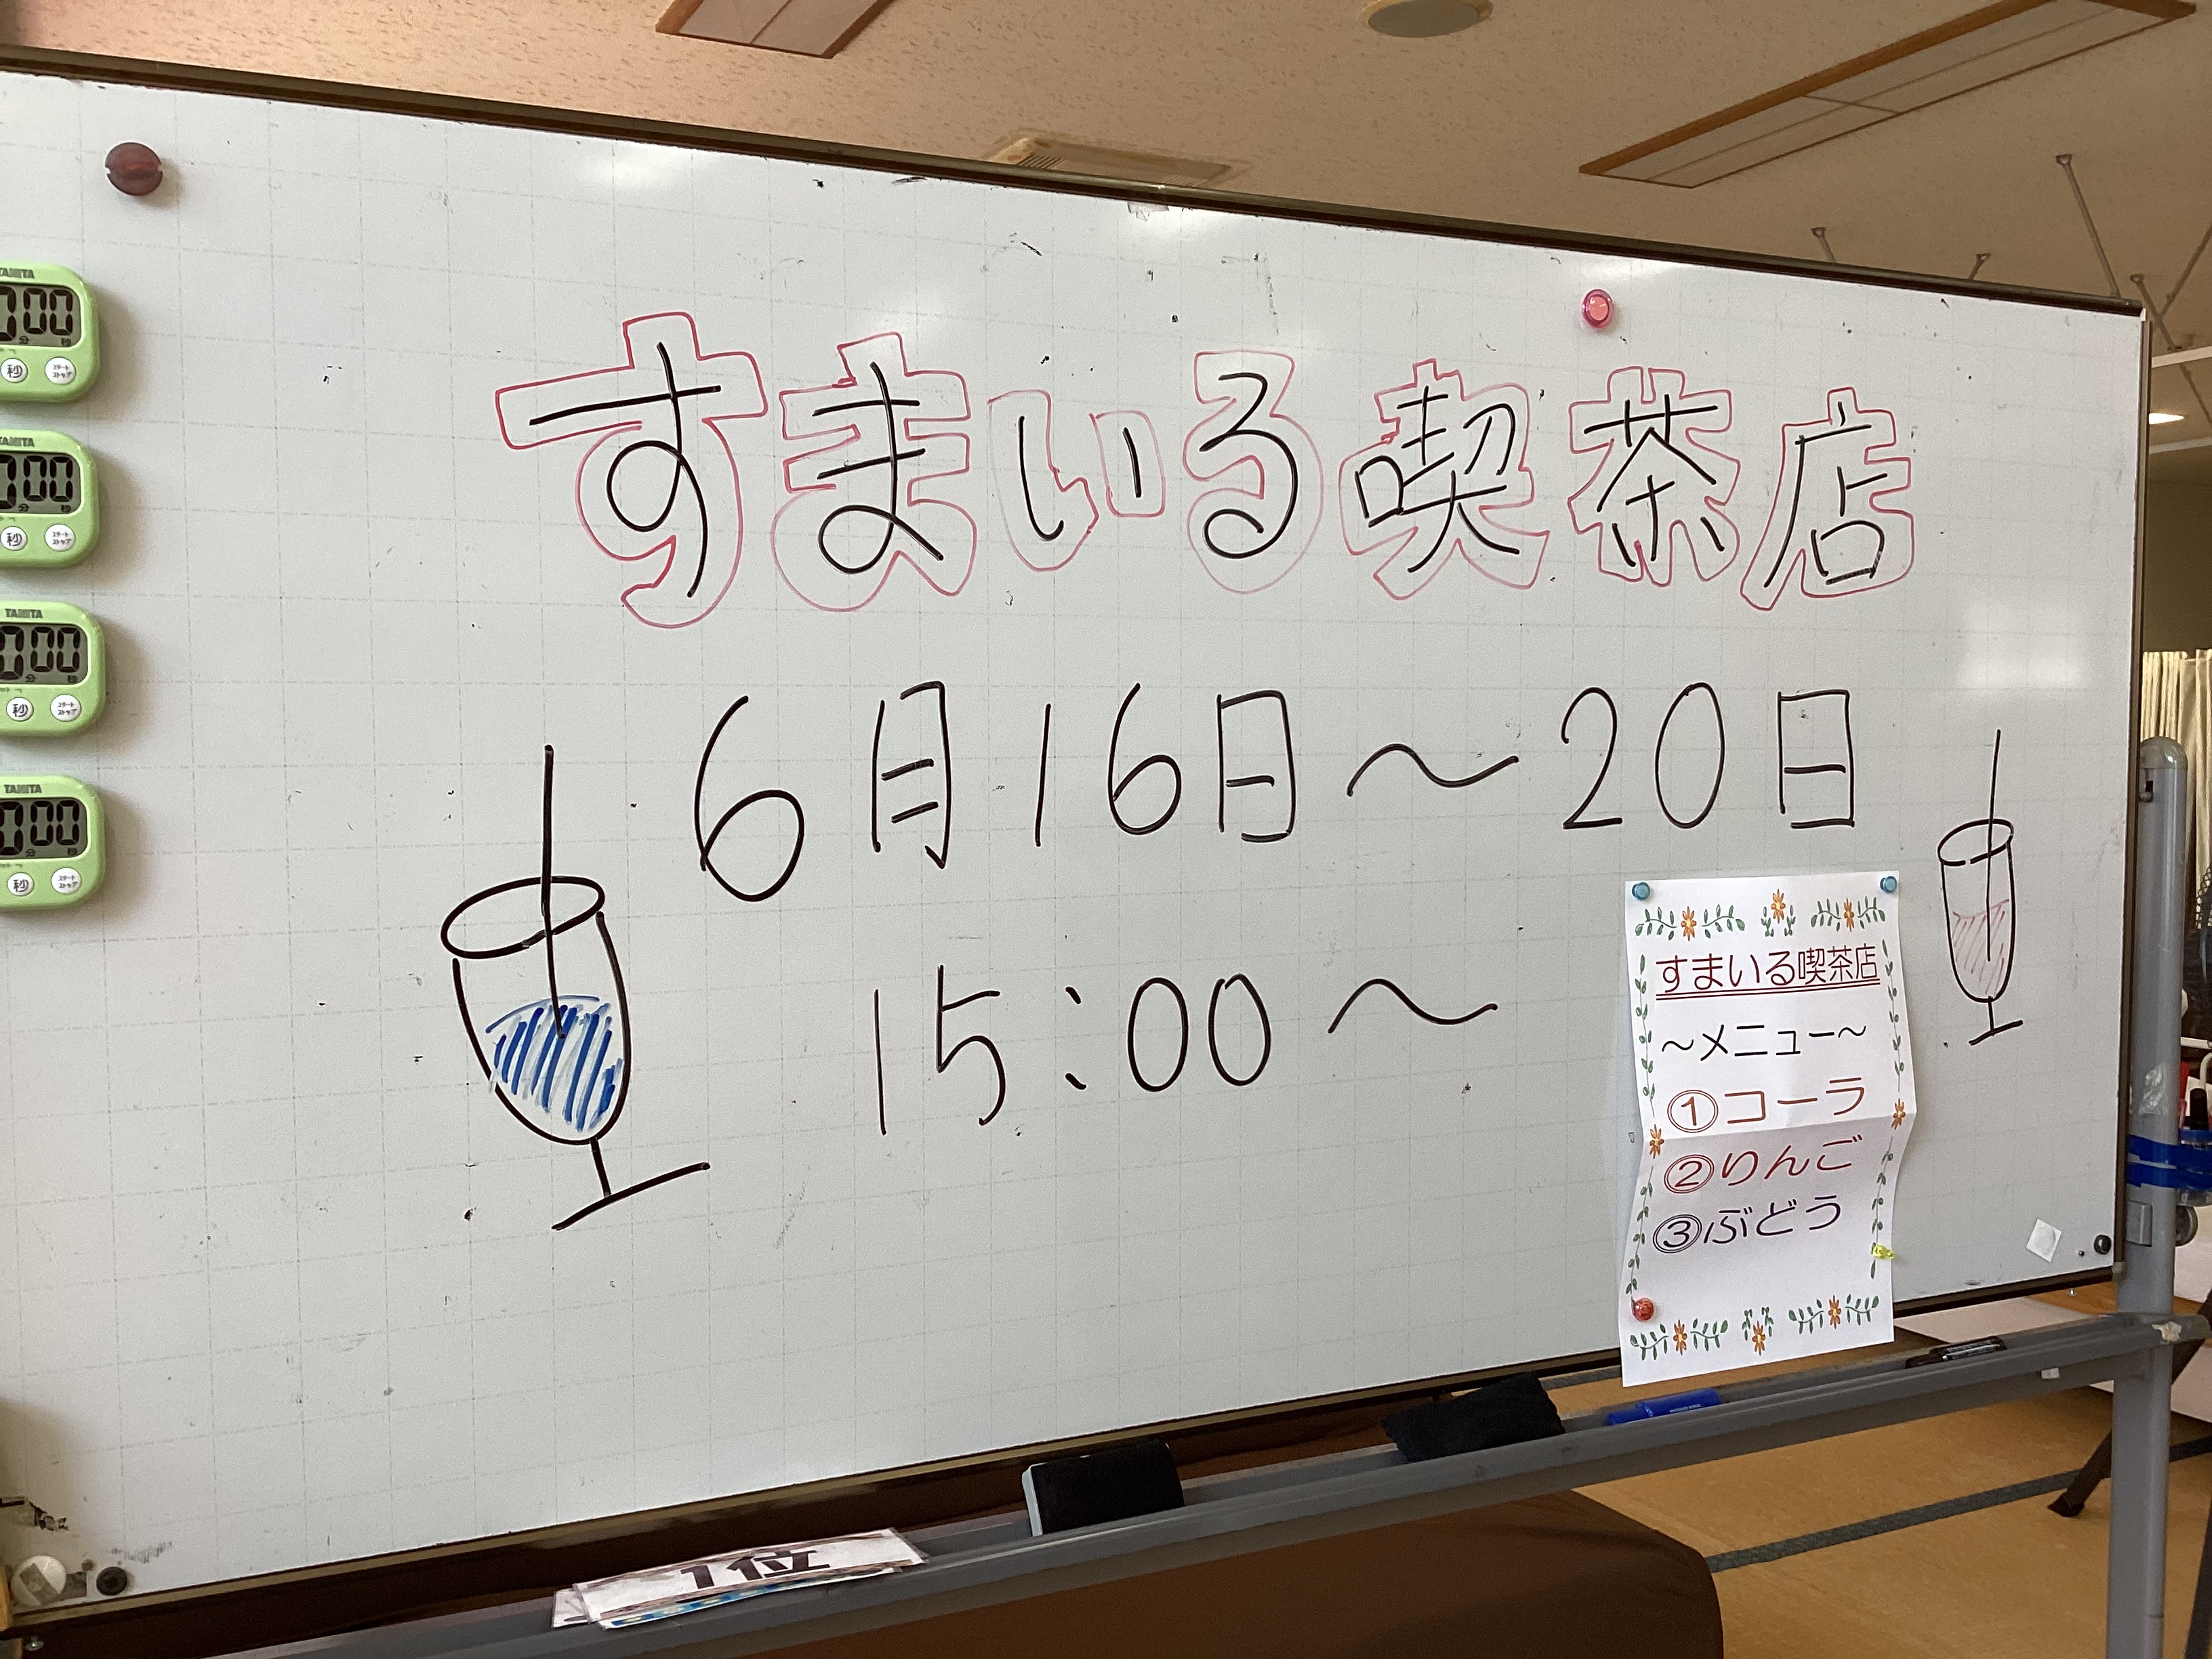 すまいる喫茶店
6月16日～20日
15:00～
すまいる喫茶店
～メニュー～
①コーラ
②りんご
③ぶどう
1位
TANITA
00
分 秒
秒 スタート ストップ
TANITA
00
分 秒
秒 スタート ストップ
TANITA
00
分 秒
秒 スタート ストップ
TANITA
00
分 秒
秒 スタート ストップ